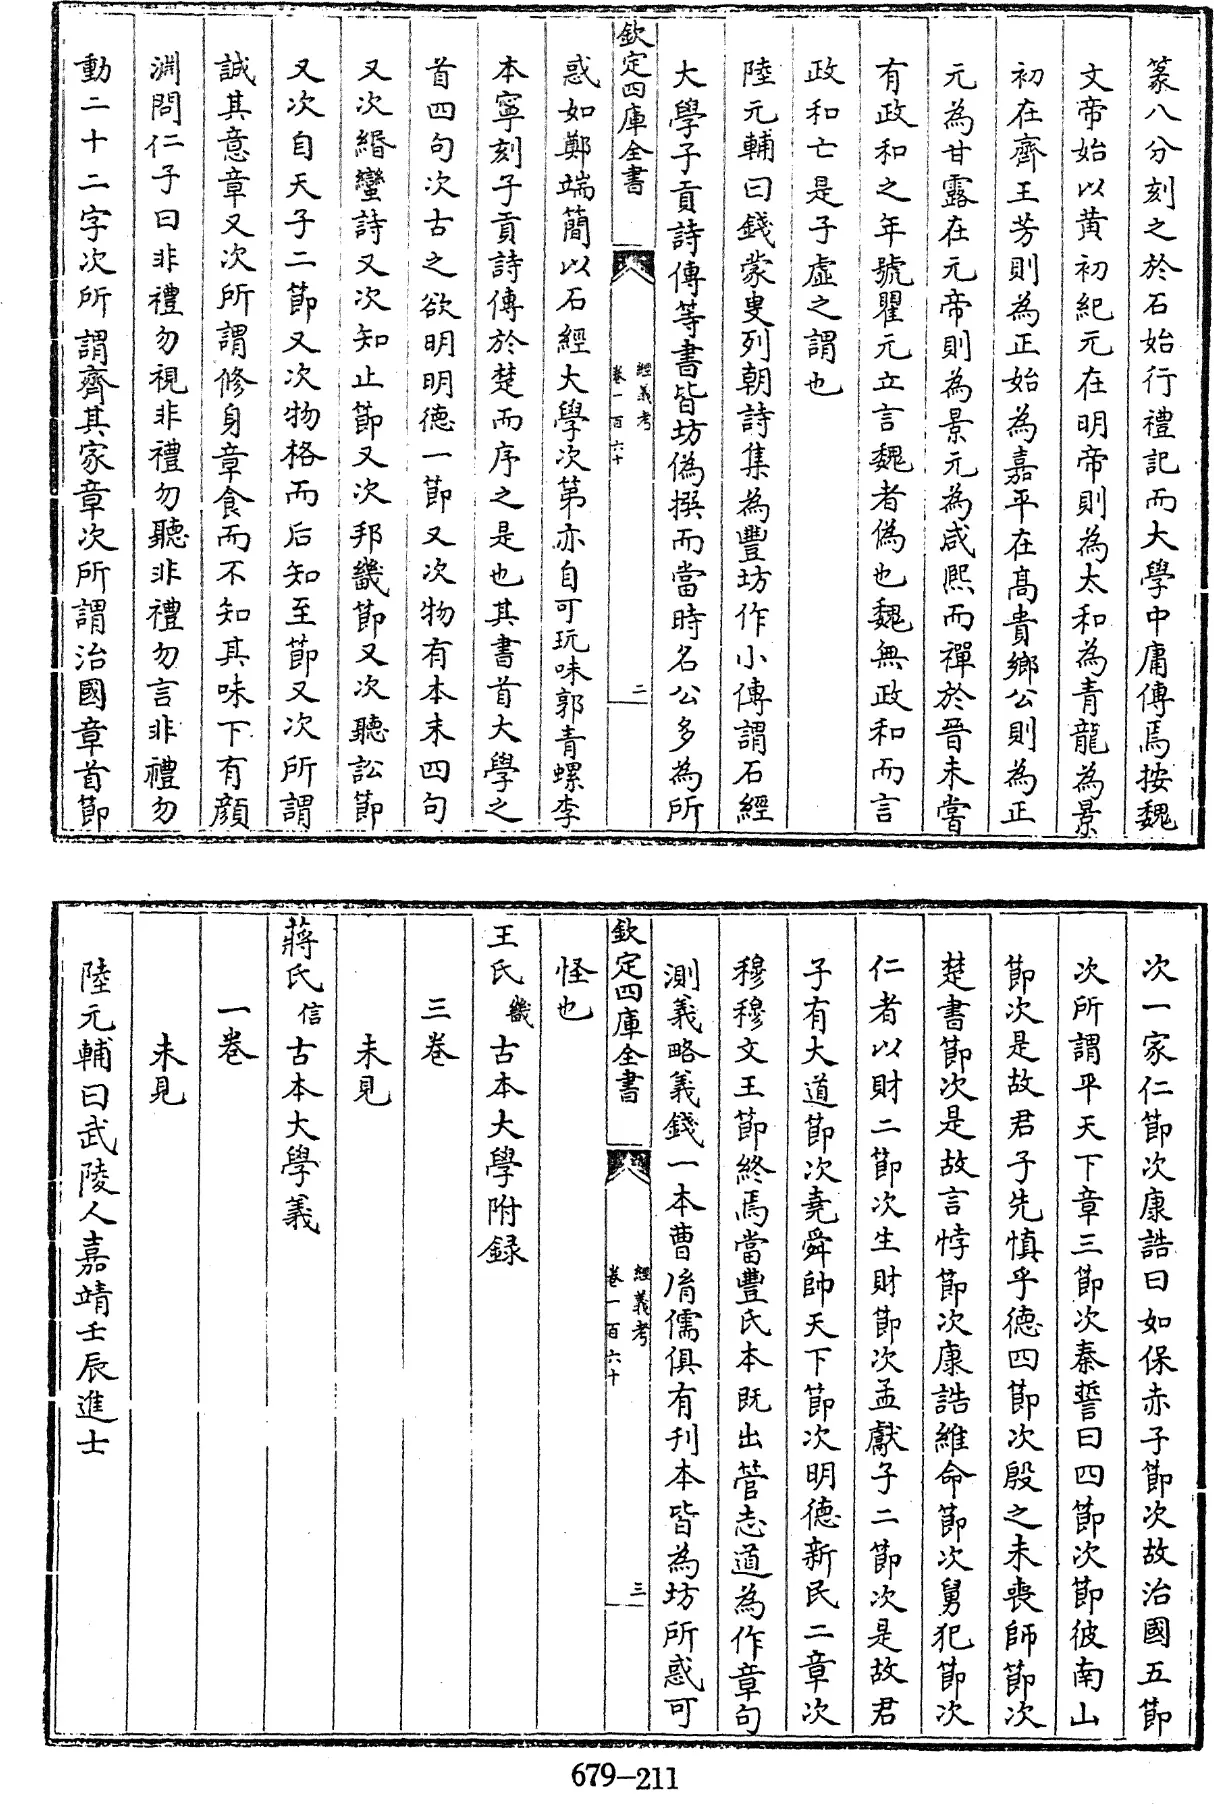 篆八分刻之於石始行禮記而大學中庸傳焉按魏
文帝始以黄初紀元在明帝則為太和為青龍為景
初在齊王芳則為正始為嘉平在髙貴鄉公則為正
元為甘露在元帝則為景元為咸熙而禪於晉未嘗
有政和之年號瞿元立言魏者偽也魏無政和而言
政和亡是子虛之謂也
陸元輔曰錢蒙叟列朝詩集為豐坊作小傳謂石經
大學子貢詩傳等書皆坊偽撰而當時名公多為所
欽定四庫全書
經義考
卷一百六十
二
惑如鄭端簡以石經大學次第亦自可玩味郭青螺李
本寧刻子貢詩傳於楚而序之是也其書首大學之
首四句次古之欲明明德一節又次物有本末四句
又次緡蠻詩又次知止節又次邦畿節又次聽訟節
又次自天子二節又次物格而后知至節又次所謂
誠其意章又次所謂修身章食而不知其味下有顔
淵問仁子曰非禮勿視非禮勿聽非禮勿言非禮勿
動二十二字次所謂齊其家章次所謂治國章首節
次一家仁節次康誥曰如保赤子節次故治國五節
次所謂平天下章三節次秦誓曰四節次節彼南山
節次是故君子先慎乎德四節次殷之未喪師節次
楚書節次是故言悖節次康誥維命節次舅犯節次
仁者以財二節次生財節次孟獻子二節次是故君
子有大道節次堯舜帥天下節次明德新民二章次
穆穆文王節終焉當豐氏本既出管志道為作章句
測義略義錢一本曹𦙍儒俱有刊本皆為坊所惑可
欽定四庫全書
經義考
卷一百六十
三
怪也
王氏畿古本大學附録
三卷
未見
蔣氏信古本大學義
一卷
未見
陸元輔曰武陵人嘉靖壬辰進士
679-211